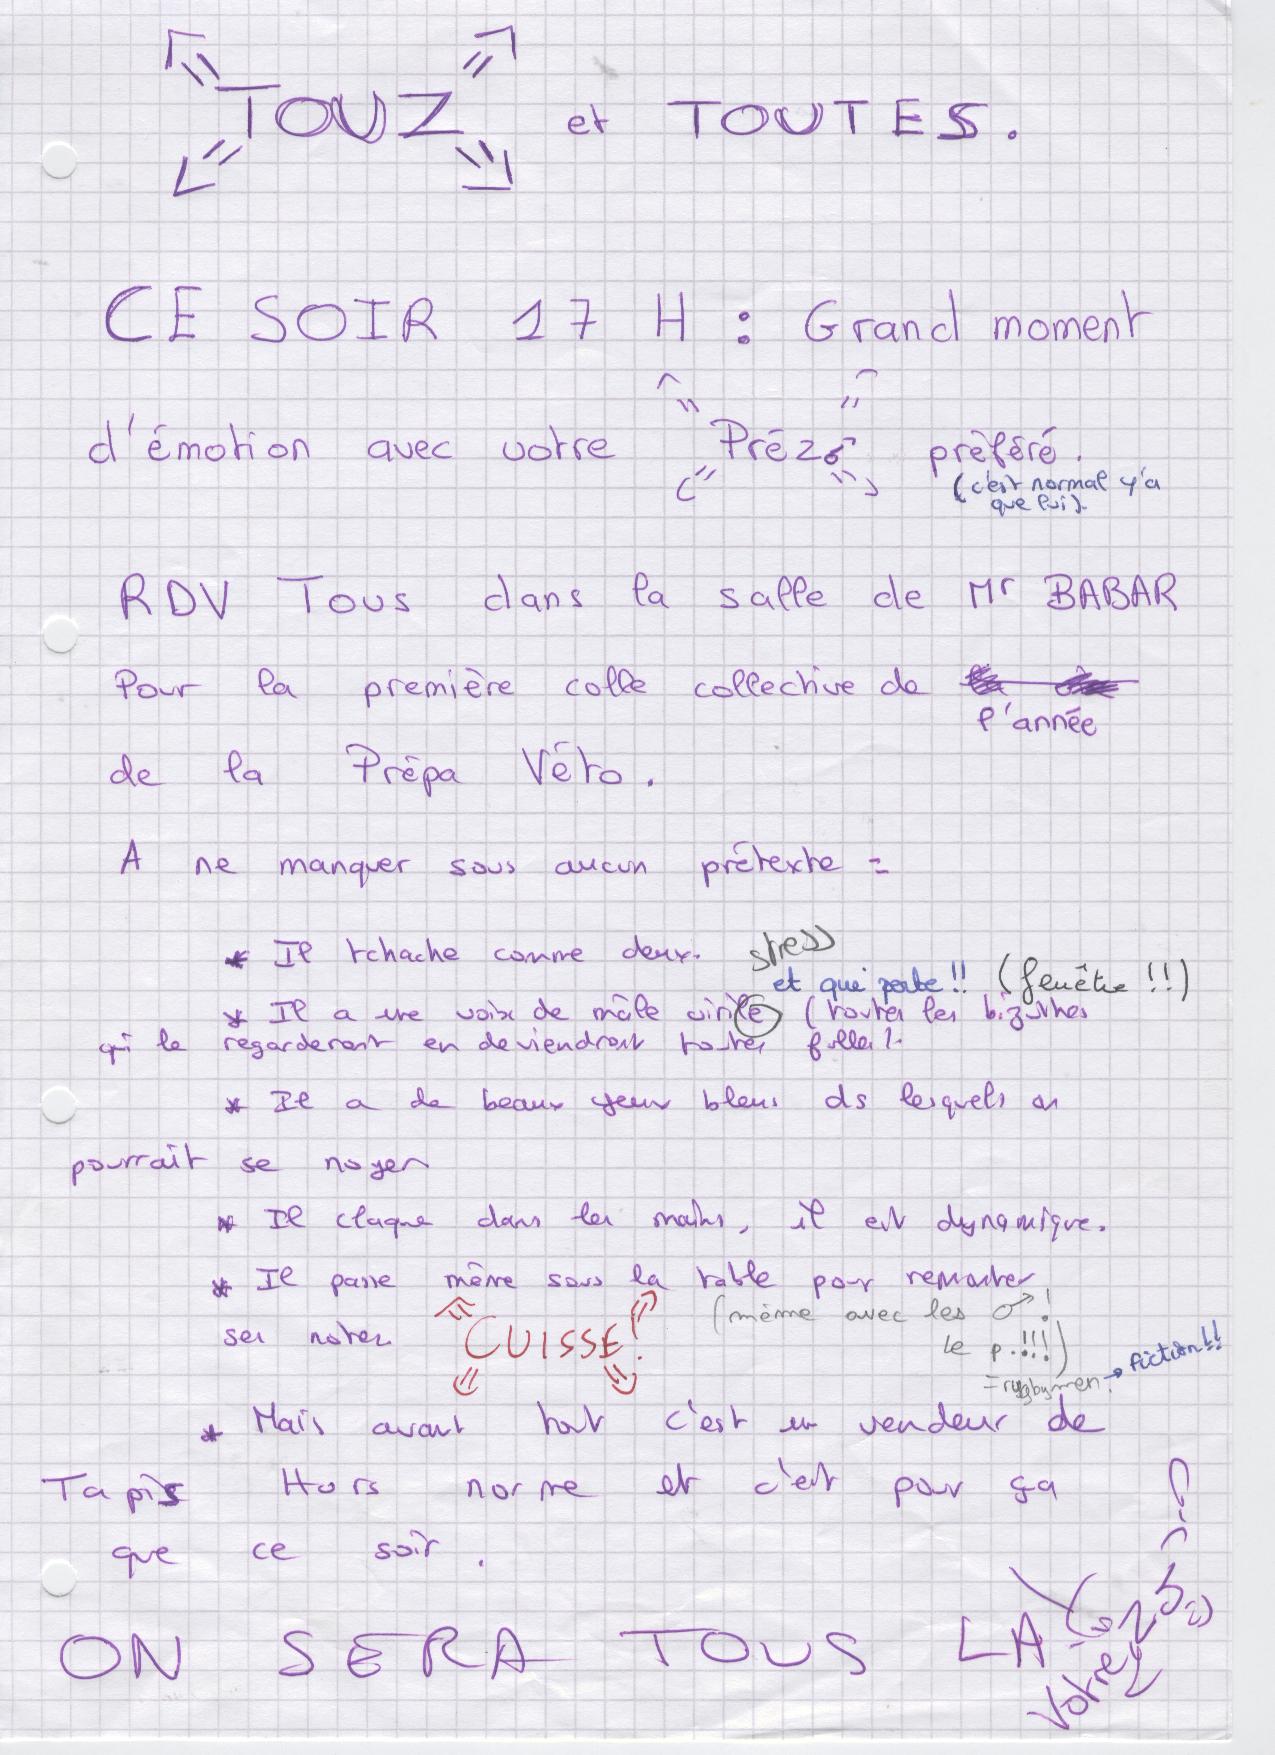 TOUZ et TOUTES.
CE SOIR 17 H : Grand moment
d'émotion avec votre Préz♂ préféré.
(c'est normal y'a
que lui).
RDV Tous dans la salle de Mr BABAR
Pour la première colle collective de
l'année
de la Prépa Véto.
A ne manquer sous aucun prétexte =
* Il tchache comme deux.
stress
et qué porte !! (fenêtre !!)
* Il a une voix de mâle virile (toutes les bizuthes
qui le regarderont en deviendront toutes folles).
* Il a de beaux yeux bleus ds lesquels on
pourrait se noyer
* Il claque dans les mains, il est dynamique.
* Il passe même sous la table pour remonter
(même avec les ♂ !
ses notes CUISSE!
le p..!!!)
=rugbymen. → fiction!!
* Mais avant tout c'est un vendeur de
Tapis Hors norme et c'est pour ça
que ce soir.
ON SERA TOUS LA
Votre